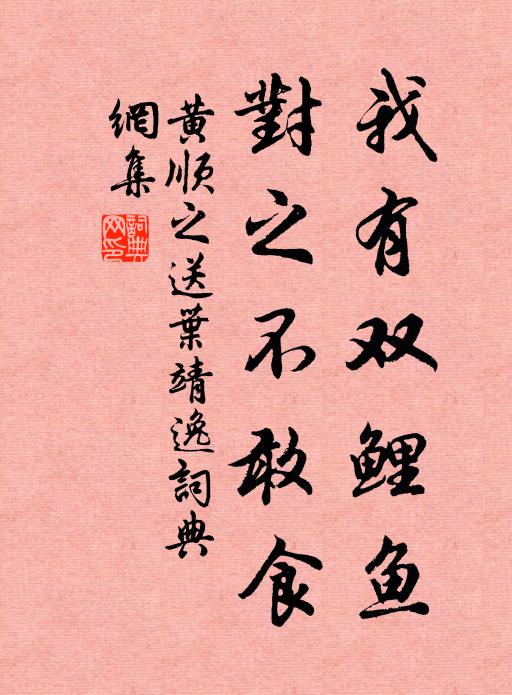 我有双鲤鱼
對之不敢食
黄顺之送葉靖逸詞典
網集
詞典
网印